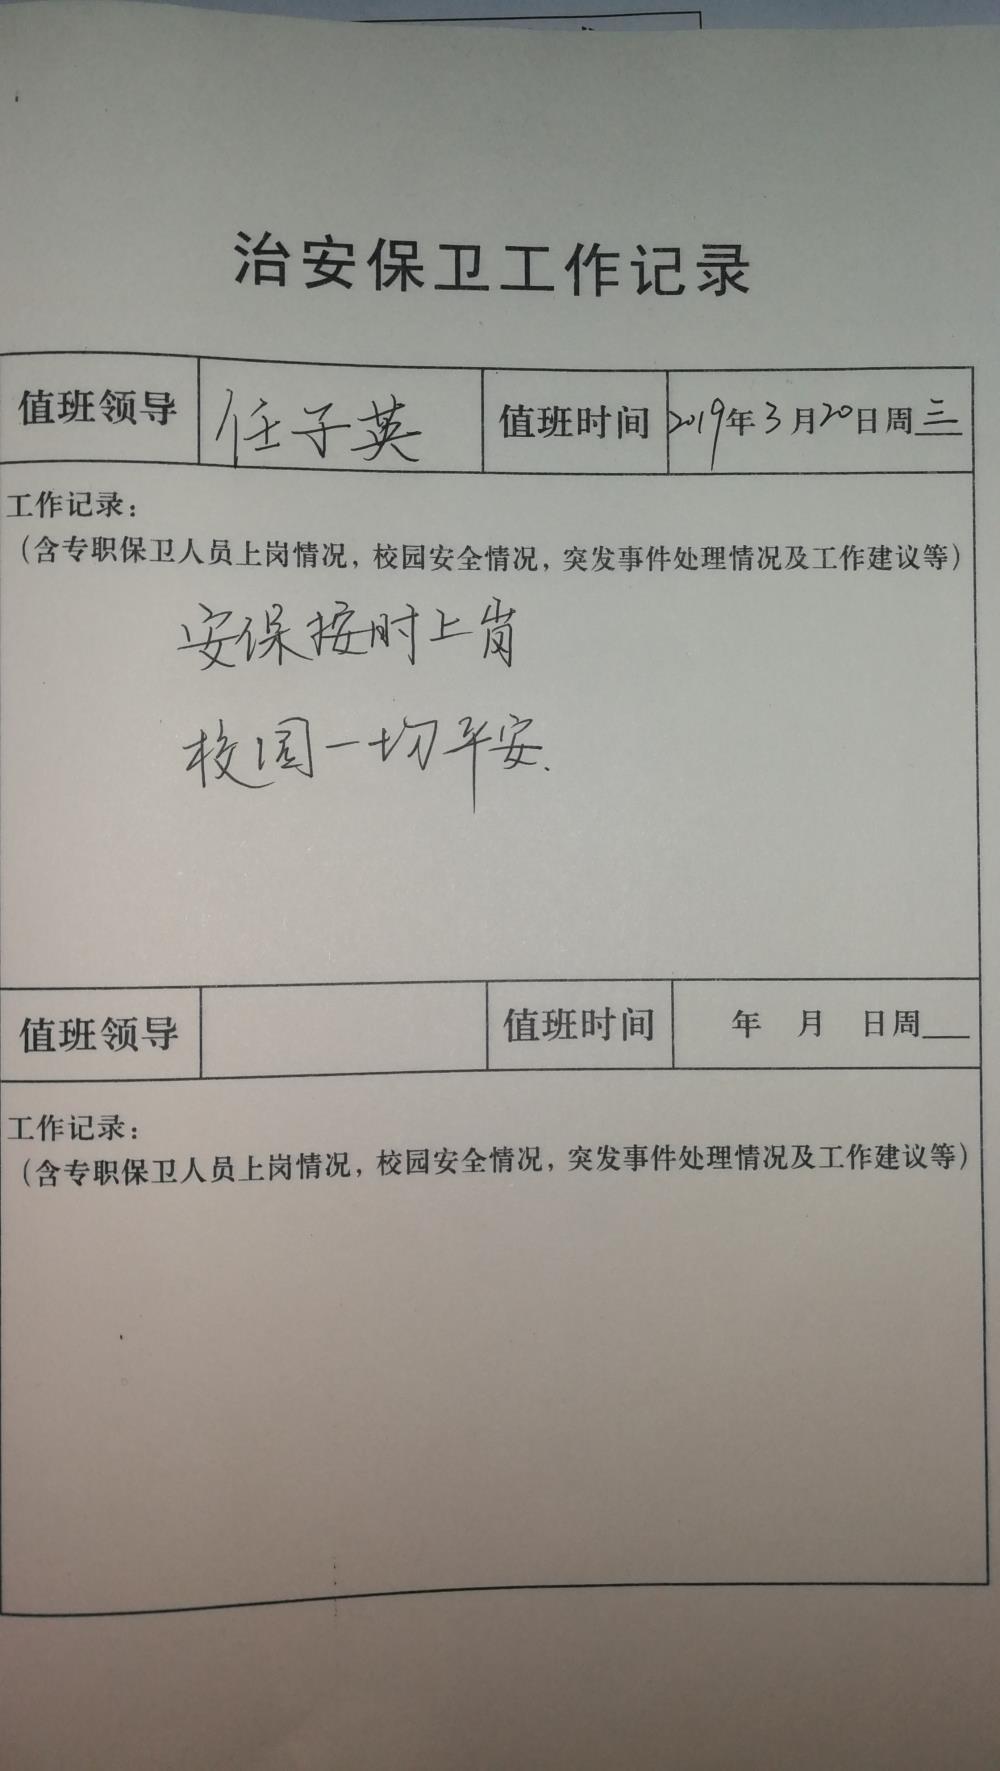 治安保卫工作记录
值班领导 任子英 值班时间 2019年3月20日周三
工作记录：
（含专职保卫人员上岗情况，校园安全情况，突发事件处理情况及工作建议等）
安保按时上岗
校园一切平安.
值班领导 值班时间 年 月 日周___
工作记录：
（含专职保卫人员上岗情况，校园安全情况，突发事件处理情况及工作建议等）